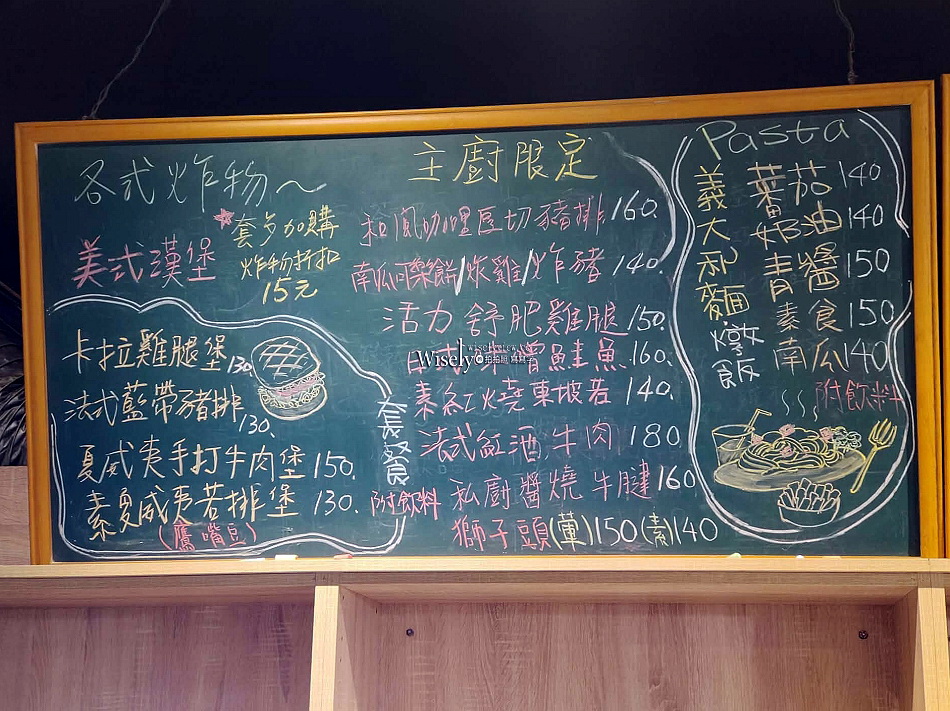 各式炸物～
套多加購
炸物折扣
15元
美式漢堡
卡拉雞腿堡 130
法式藍帶豬排 130.
夏威夷手打牛肉堡 150.
素夏威夷若排堡 130.
(鷹嘴豆)
套餐
附飲料
主廚限定
和風咖哩厚切豬排 160.
南瓜可樂餅/炸雞/炸豬 140.
活力舒肥雞腿 150.
鮭魚 160.
素紅燒東坡若 140.
法式紅酒牛肉 180
私廚醬燒牛腱 160
獅子頭(葷)150(素)140
Wisely
Pasta
義大利麵.燉飯
蕃茄 140
奶油 140
青醬 150
素食 150
南瓜 140
附飲料